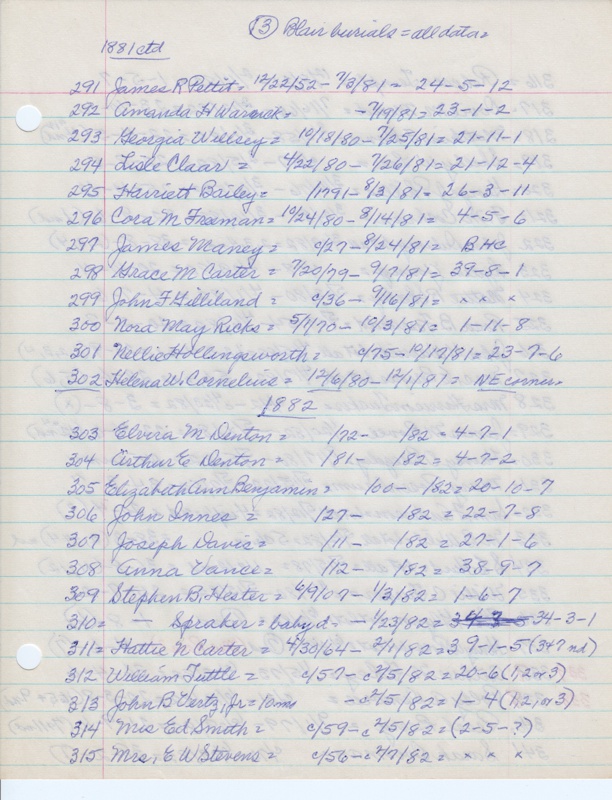 (13) Blair burials = all data =
1881 ctd
291 James R Pettit = 12/22/52 - 7/3/81 = 24-5-12
292 Amanda H Warwick = - 7/19/81 = 23-1-2
293 Georgia Willsey = 10/18/80 - 7/25/81 = 21-11-1
294 Lisle Claar = 4/22/80 - 7/26/81 = 21-12-4
295 Harriett Bailey = /1791 - 8/3/81 = 26-3-11
296 Cora M Freeman = 10/24/80 - 8/14/81 = 4-5-6
297 James Maney = c/27 - 8/24/81 = BHC
298 Grace M Carter = 7/20/79 - 9/7/81 = 39-8-1
299 John F Gilliland = c/36 - 9/16/81 = x x x
300 Nora May Ricks = 5/1/70 - 10/3/81 = 1-11-8
301 Nellie Hollingsworth = c/75 - 10/17/81 = 23-7-6
302 Helena W. Cornelius = 12/6/80 - 12/1/81 = NE corner
1882
303 Elvira M Denton = /72 - /82 = 4-7-1
304 Arthur E Denton = /81 - /82 = 4-7-2
305 Elizabeth Ann Benjamin = /00 - /82 = 20-10-7
306 John Innes = /27 - /82 = 22-7-8
307 Joseph Davis = /11 - /82 = 27-1-6
308 Anna Vance = /12 - /82 = 38-9-7
309 Stephen B. Hester = 6/9/07 - 1/3/82 = 1-6-7
310 = - Spraker = baby d = - 1/23/82 = 34-3-1
311 = Hattie N Carter = 4/30/64 - 2/1/82 = 39-1-5 (3+7 nd)
312 William Tuttle = c/57 - c2/5/82 = 20-6 (1,2 or 3)
313 John B Vertz, Jr = 10ms - c2/5/82 = 1-4 (1,2, or 3)
314 Mrs Ed Smith = c/59 - c2/5/82 = (2-5-?)
315 Mrs. E. W Stevens = c/56 - c2/7/82 = x x x